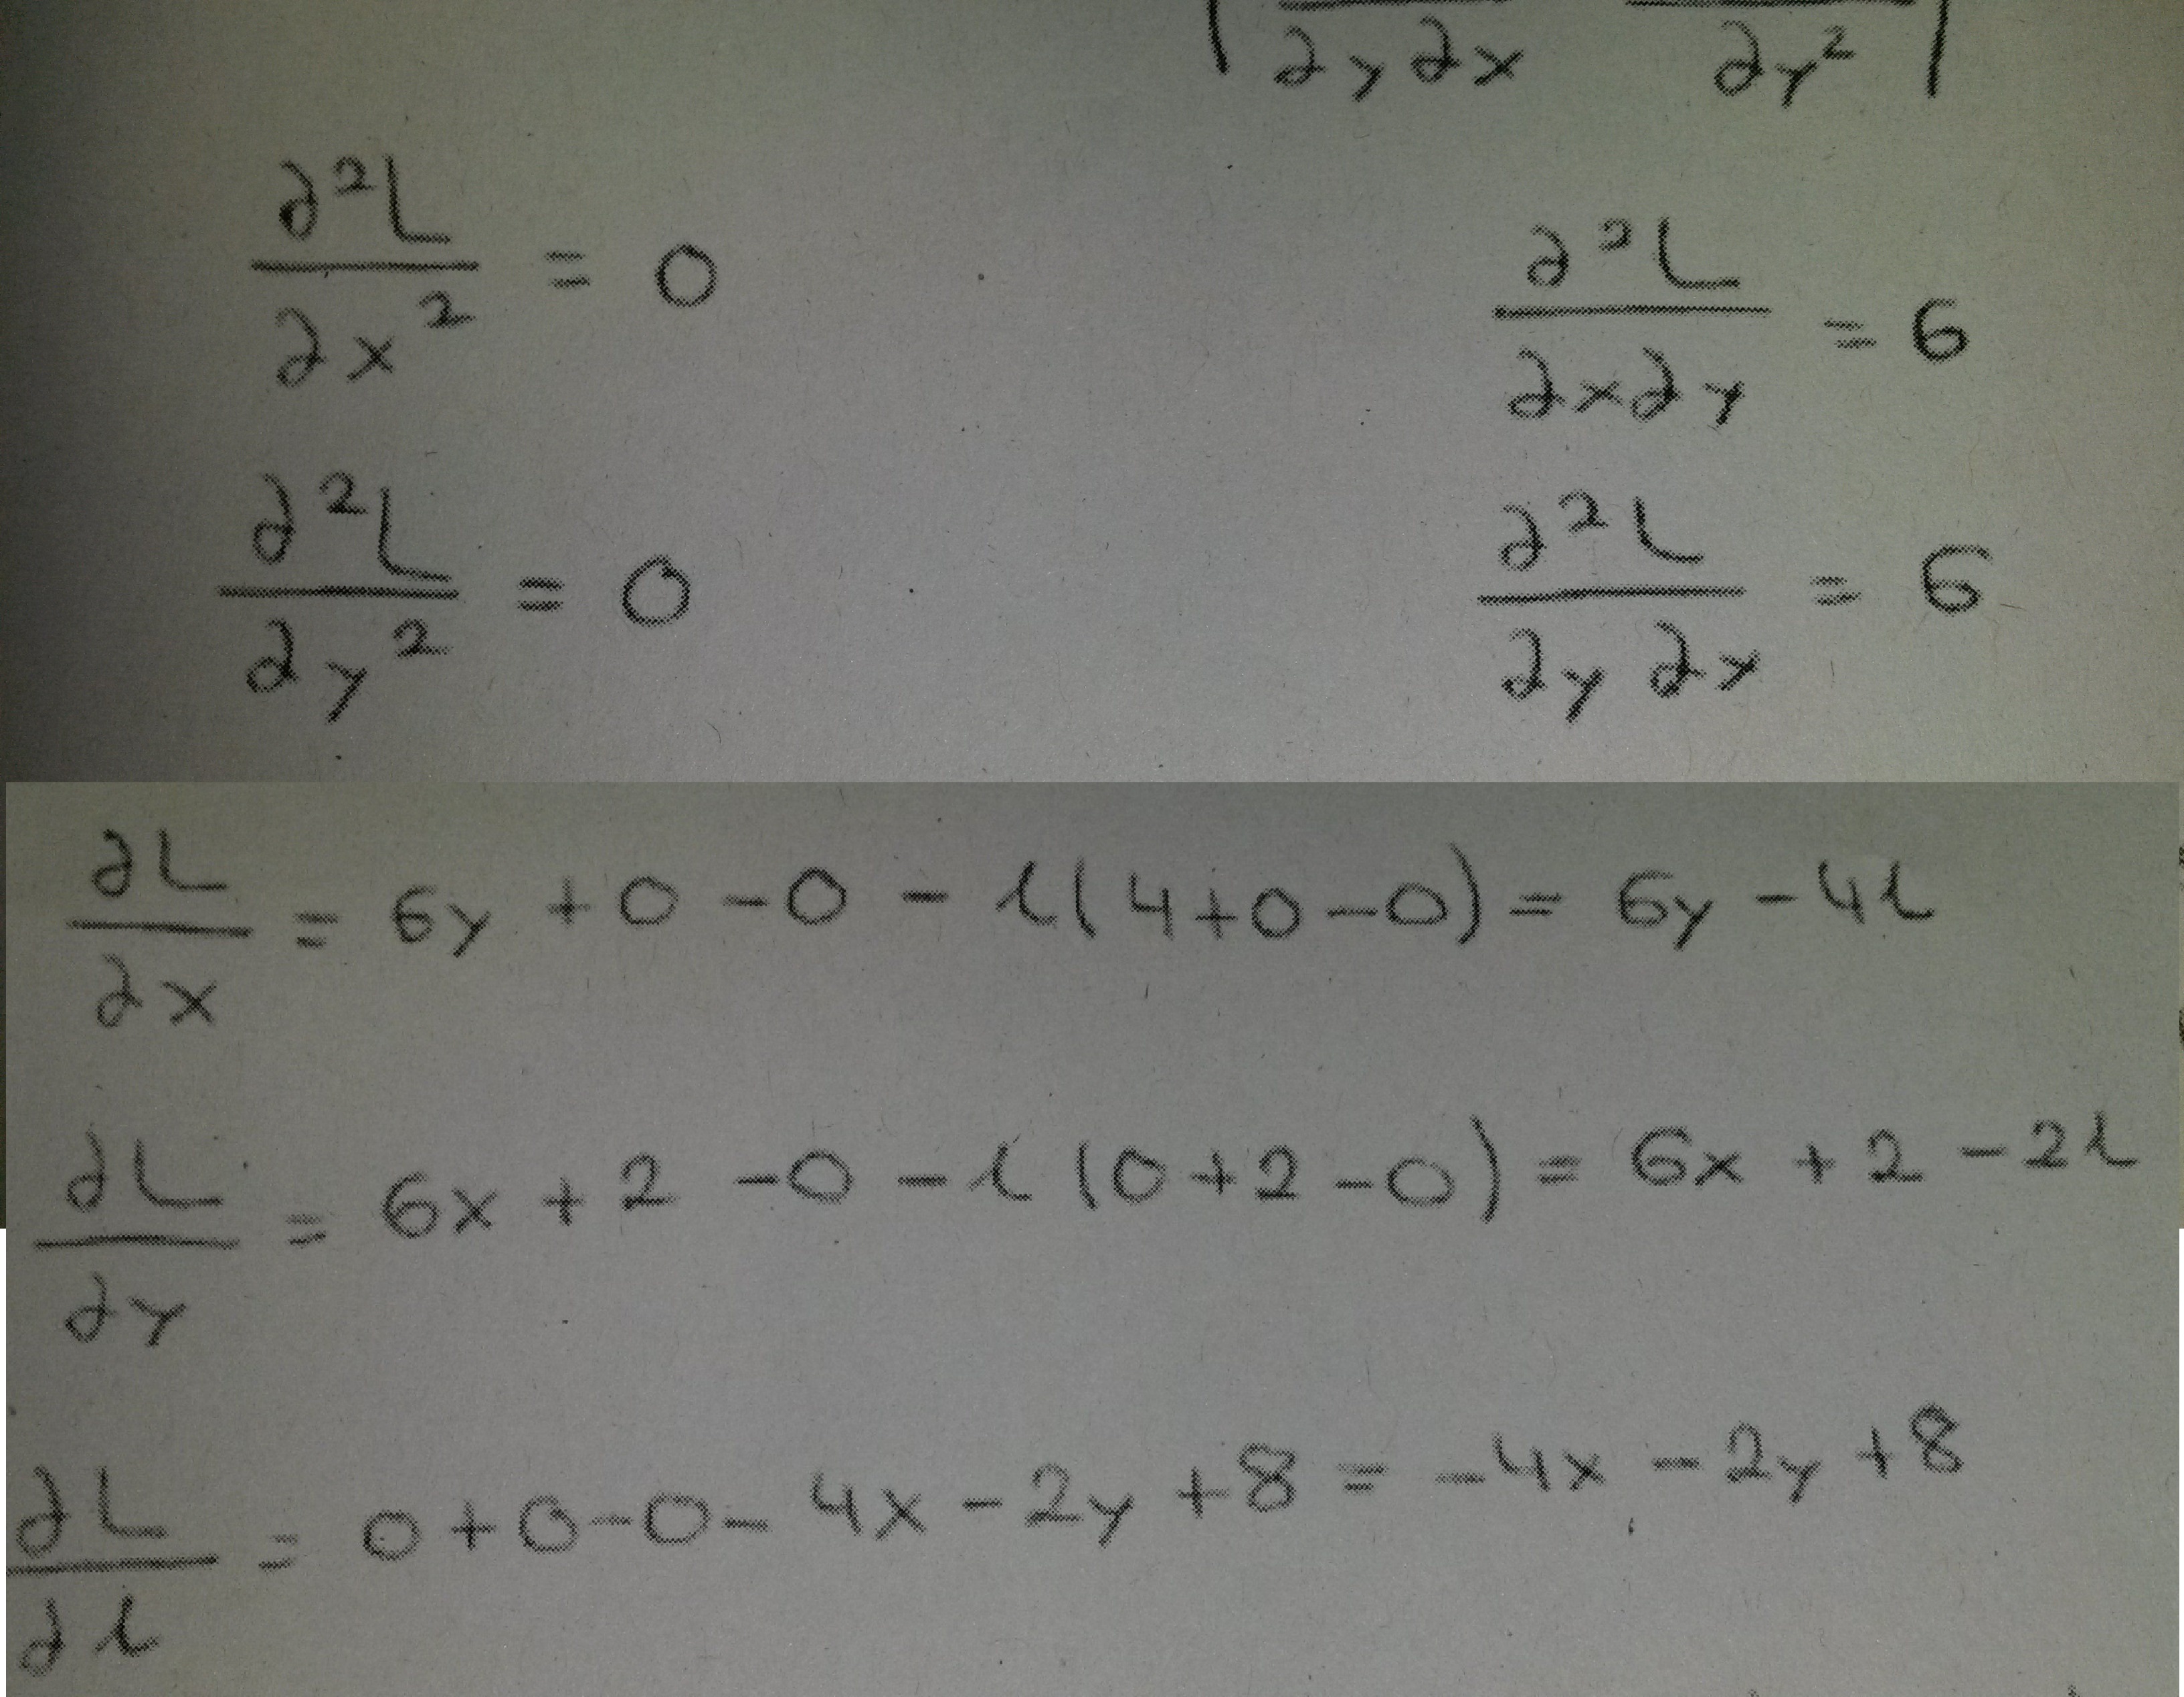 ∂y∂x ∂y²
∂²L/∂x² = 0
∂²L/∂x∂y = 6
∂²L/∂y² = 0
∂²L/∂y∂x = 6
∂L/∂x = 6y + 0 - 0 - λ(4+0-0) = 6y - 4λ
∂L/∂y = 6x + 2 - 0 - λ(0+2-0) = 6x + 2 - 2λ
∂L/∂λ = 0+0-0- 4x - 2y + 8 = -4x - 2y + 8